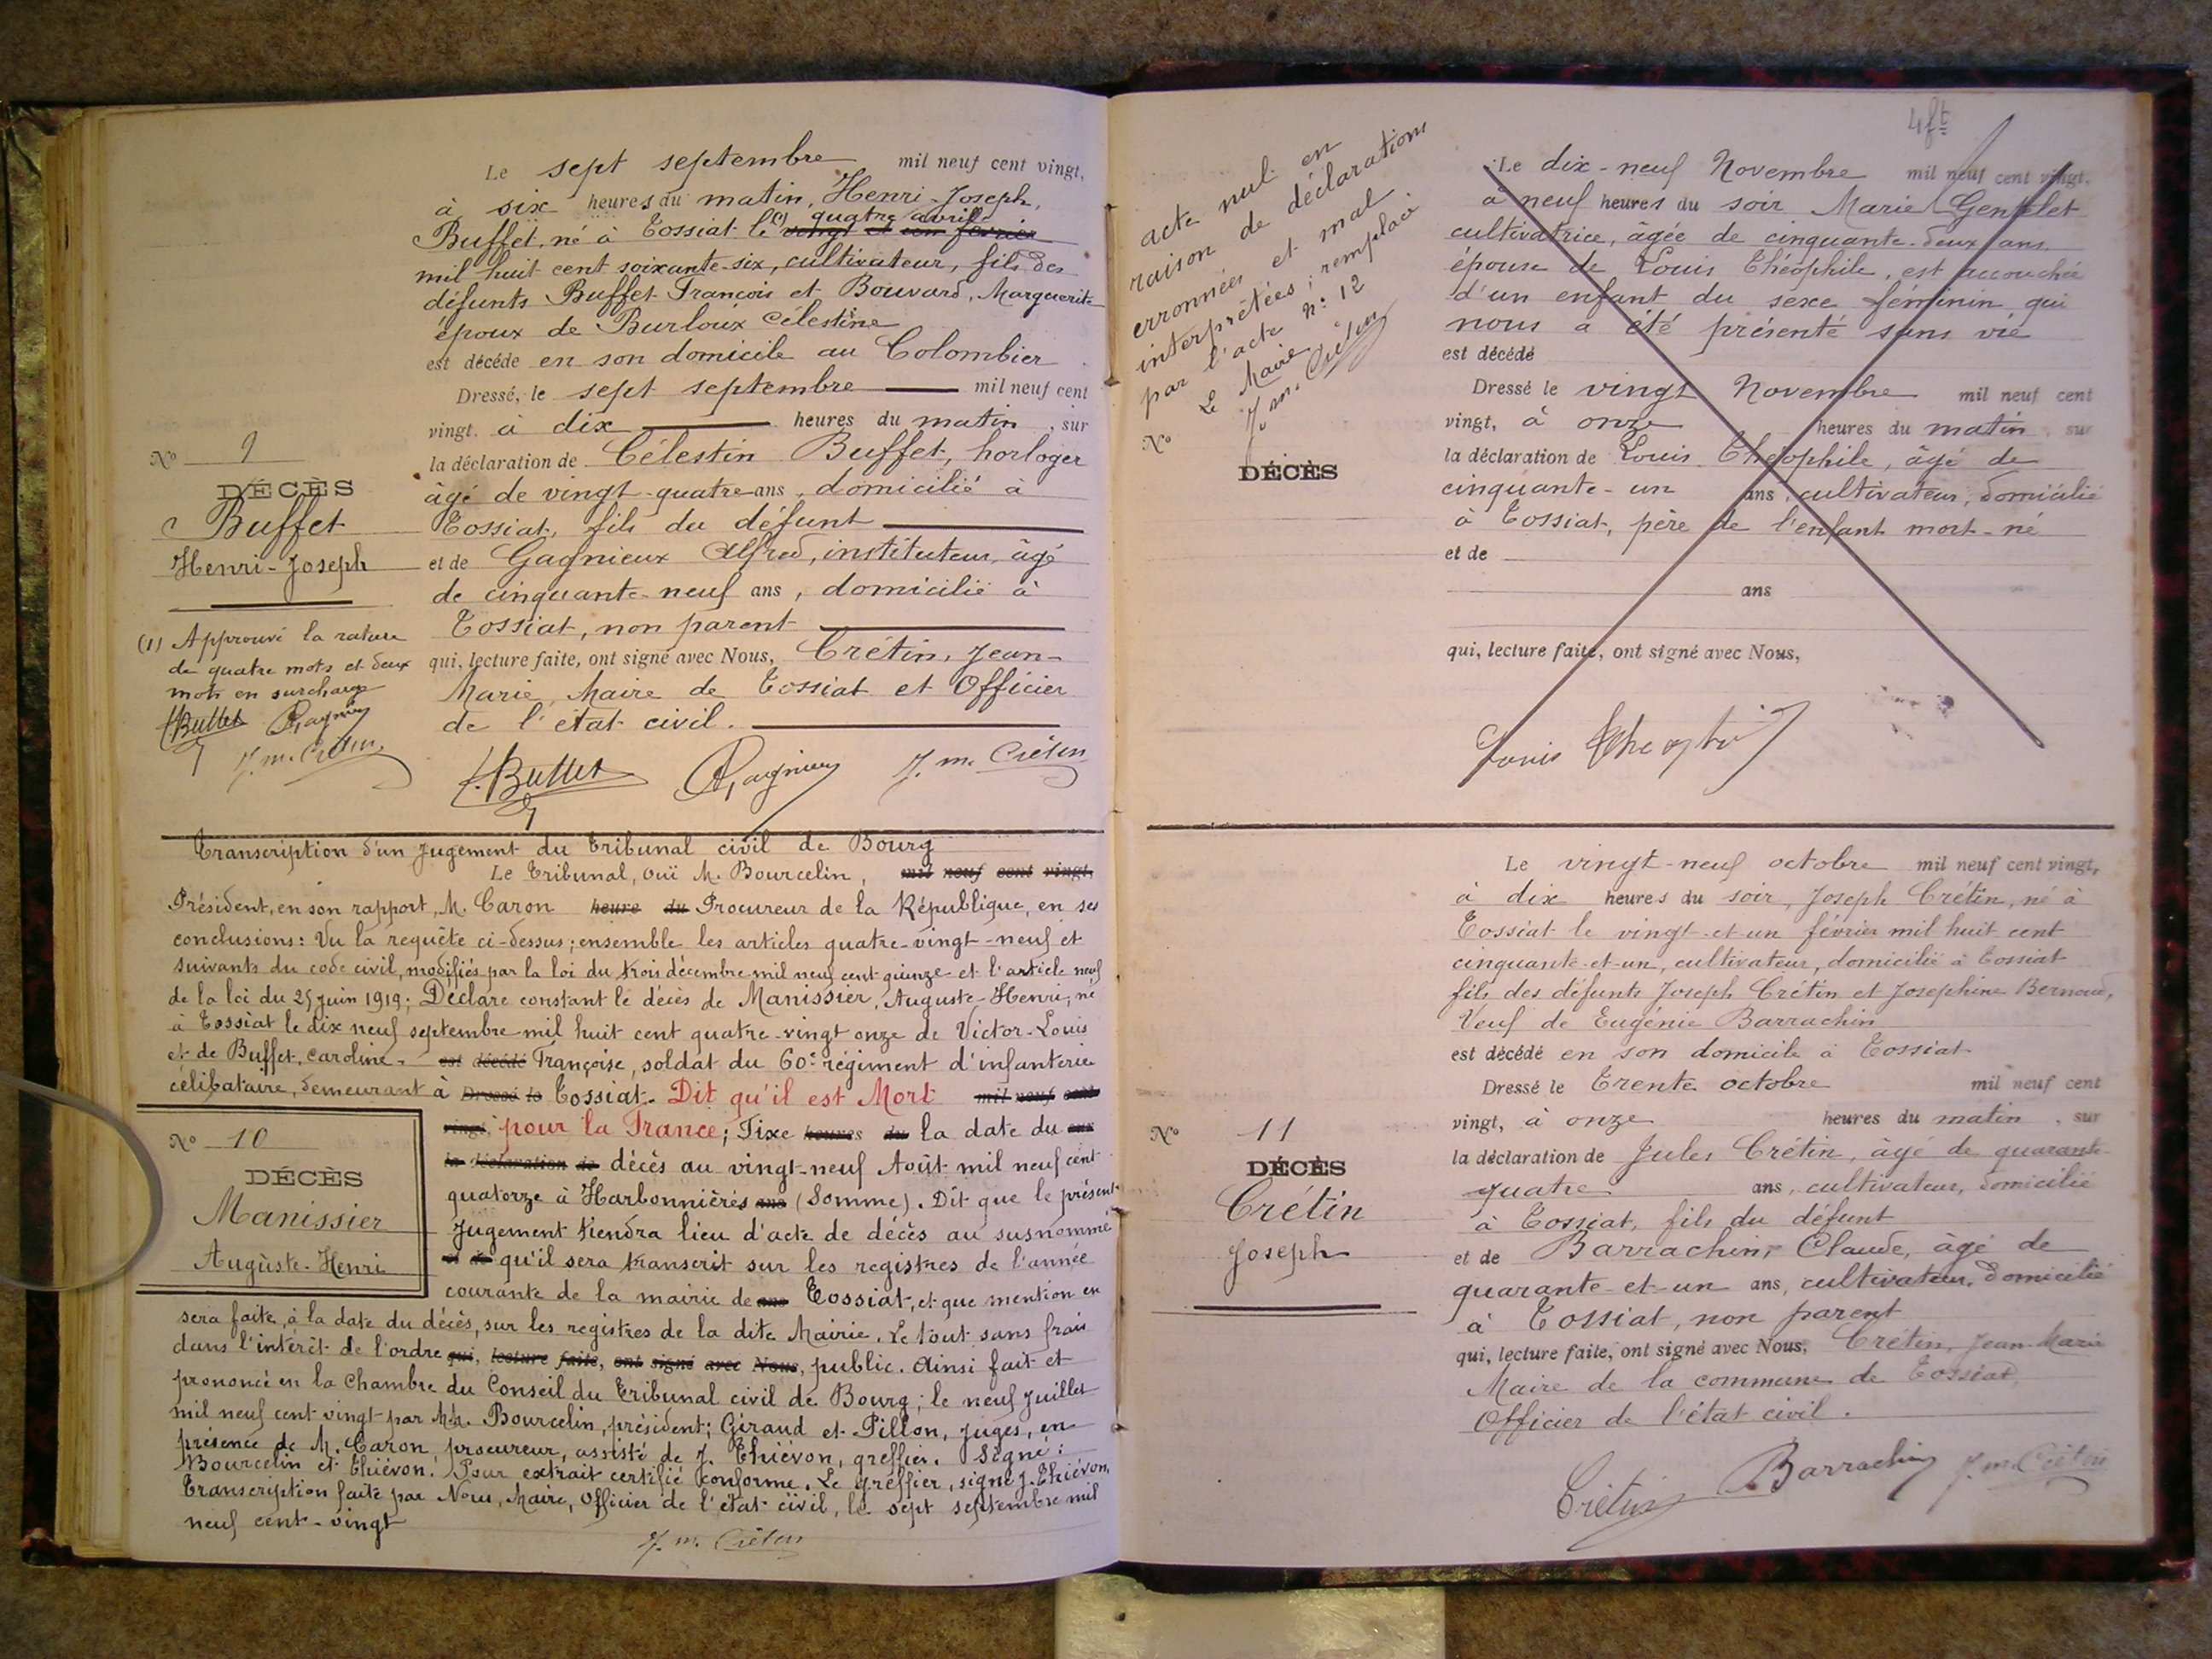 Le sept septembre mil neuf cent vingt,
à six heures du matin, Henri-Joseph,
(1) quatre avril
Buffet, né à Tossiat le vingt et un février
mil huit cent soixante-six, cultivateur, fils des
défunts Buffet François et Bouvard, Marguerite
époux de Burloux Célestine
est décédé en son domicile au Colombier
Dressé, le sept septembre mil neuf cent
vingt, à dix heures du matin, sur
la déclaration de Célestin Buffet, horloger
âgé de vingt-quatre ans, domicilié à
Tossiat, fils du défunt
et de Gagnieux Alfred, instituteur, âgé
de cinquante-neuf ans, domicilié à
Tossiat, non parent
qui, lecture faite, ont signé avec Nous, Crétin, Jean-
Marie, Maire de Tossiat et Officier
de l'état civil.
Buffet J. m. Crétin
No 9
DÉCÈS
Buffet
Henri-Joseph
(1) Approuvé la rature
de quatre mots et deux
mots en surcharge
Buffet
J. m. Crétin
Transcription d'un Jugement du Tribunal civil de Bourg
Le Tribunal, ouï M. Bourcelin, mil neuf cent vingt,
Président, en son rapport, M. Caron heure du Procureur de la République, en ses
conclusions: Vu la requête ci-dessus; ensemble les articles quatre-vingt-neuf et
suivants du code civil, modifiés par la loi du trois décembre mil neuf cent quinze et l'article neuf
de la loi du 25 juin 1919; Déclare constant le décès de Manissier, Auguste-Henri, né
à Tossiat le dix neuf septembre mil huit cent quatre-vingt onze de Victor-Louis
et de Buffet, Caroline- est décédé Françoise, soldat du 60e régiment d'infanterie
célibataire, demeurant à Dressé le Tossiat. Dit qu'il est Mort mil neuf cent
vingt, pour la France; Fixe heures du la date du sur
la déclaration de décès au vingt-neuf Août mil neuf cent
quatorze à Harbonnières ans (Somme). Dit que le présent
Jugement tiendra lieu d'acte de décès au susnommé
et de qu'il sera transcrit sur les registres de l'année
courante de la mairie de ans Tossiat, et que mention en
No 10
DÉCÈS
Manissier
Auguste-Henri
sera faite, à la date du décès, sur les registres de la dite Mairie. Le tout sans frais
dans l'intérêt de l'ordre qui, lecture faite, ont signé avec Nous, public. Ainsi fait et
prononcé en la Chambre du Conseil du Tribunal civil de Bourg; le neuf Juillet
mil neuf cent vingt par M.M. Bourcelin, président; Giraud et Pillon, Juges, en
présence de M. Caron procureur, assisté de J. Thiévon, greffier. Signé:
Bourcelin et Thiévon. Pour extrait certifié conforme. Le greffier, signé J. Thiévon,
Transcription faite par Nous, Maire, Officier de l'état civil, le sept septembre mil
neuf cent-vingt
J. m. Crétin
acte nul en
raison de déclarations
erronnées et mal
interprêtées; remplacé
par l'acte No 12
Le Maire
J. m. Crétin
No
DÉCÈS
Le dix-neuf Novembre mil neuf cent vingt,
à neuf heures du soir Marie
cultivatrice, âgée de cinquante-deux ans,
épouse de Louis Théophile, est accouchée
d'un enfant du sexe féminin qui
nous a été présenté sans vie
est décédé
Dressé le vingt Novembre mil neuf cent
vingt, à onze heures du matin, sur
la déclaration de Louis Théophile, âgé de
cinquante-un ans, cultivateur, domicilié
à Tossiat, père de l'enfant mort-né
et de
ans
qui, lecture faite, ont signé avec Nous,
Louis
Le vingt-neuf octobre mil neuf cent vingt,
à dix heures du soir, Joseph Crétin, né à
Tossiat le vingt-et-un février mil huit cent
cinquante-et-un, cultivateur, domicilié à Tossiat
fils des défunts Joseph Crétin et Josephine Bernoud,
Veuf de Eugénie Barrachin
est décédé en son domicile à Tossiat
Dressé le Trente octobre mil neuf cent
vingt, à onze heures du matin, sur
la déclaration de Jules Crétin, âgé de quarante-
quatre ans, cultivateur, domicilié
à Tossiat, fils du défunt
et de Barrachin, Claude, âgé de
quarante-et-un ans, cultivateur, domicilié
à Tossiat, non parent
qui, lecture faite, ont signé avec Nous, Crétin, Jean-Marie
Maire de la commune de Tossiat
Officier de l'état civil.
Crétin Barrachin J. m. Crétin
No 11
DÉCÈS
Crétin
Joseph